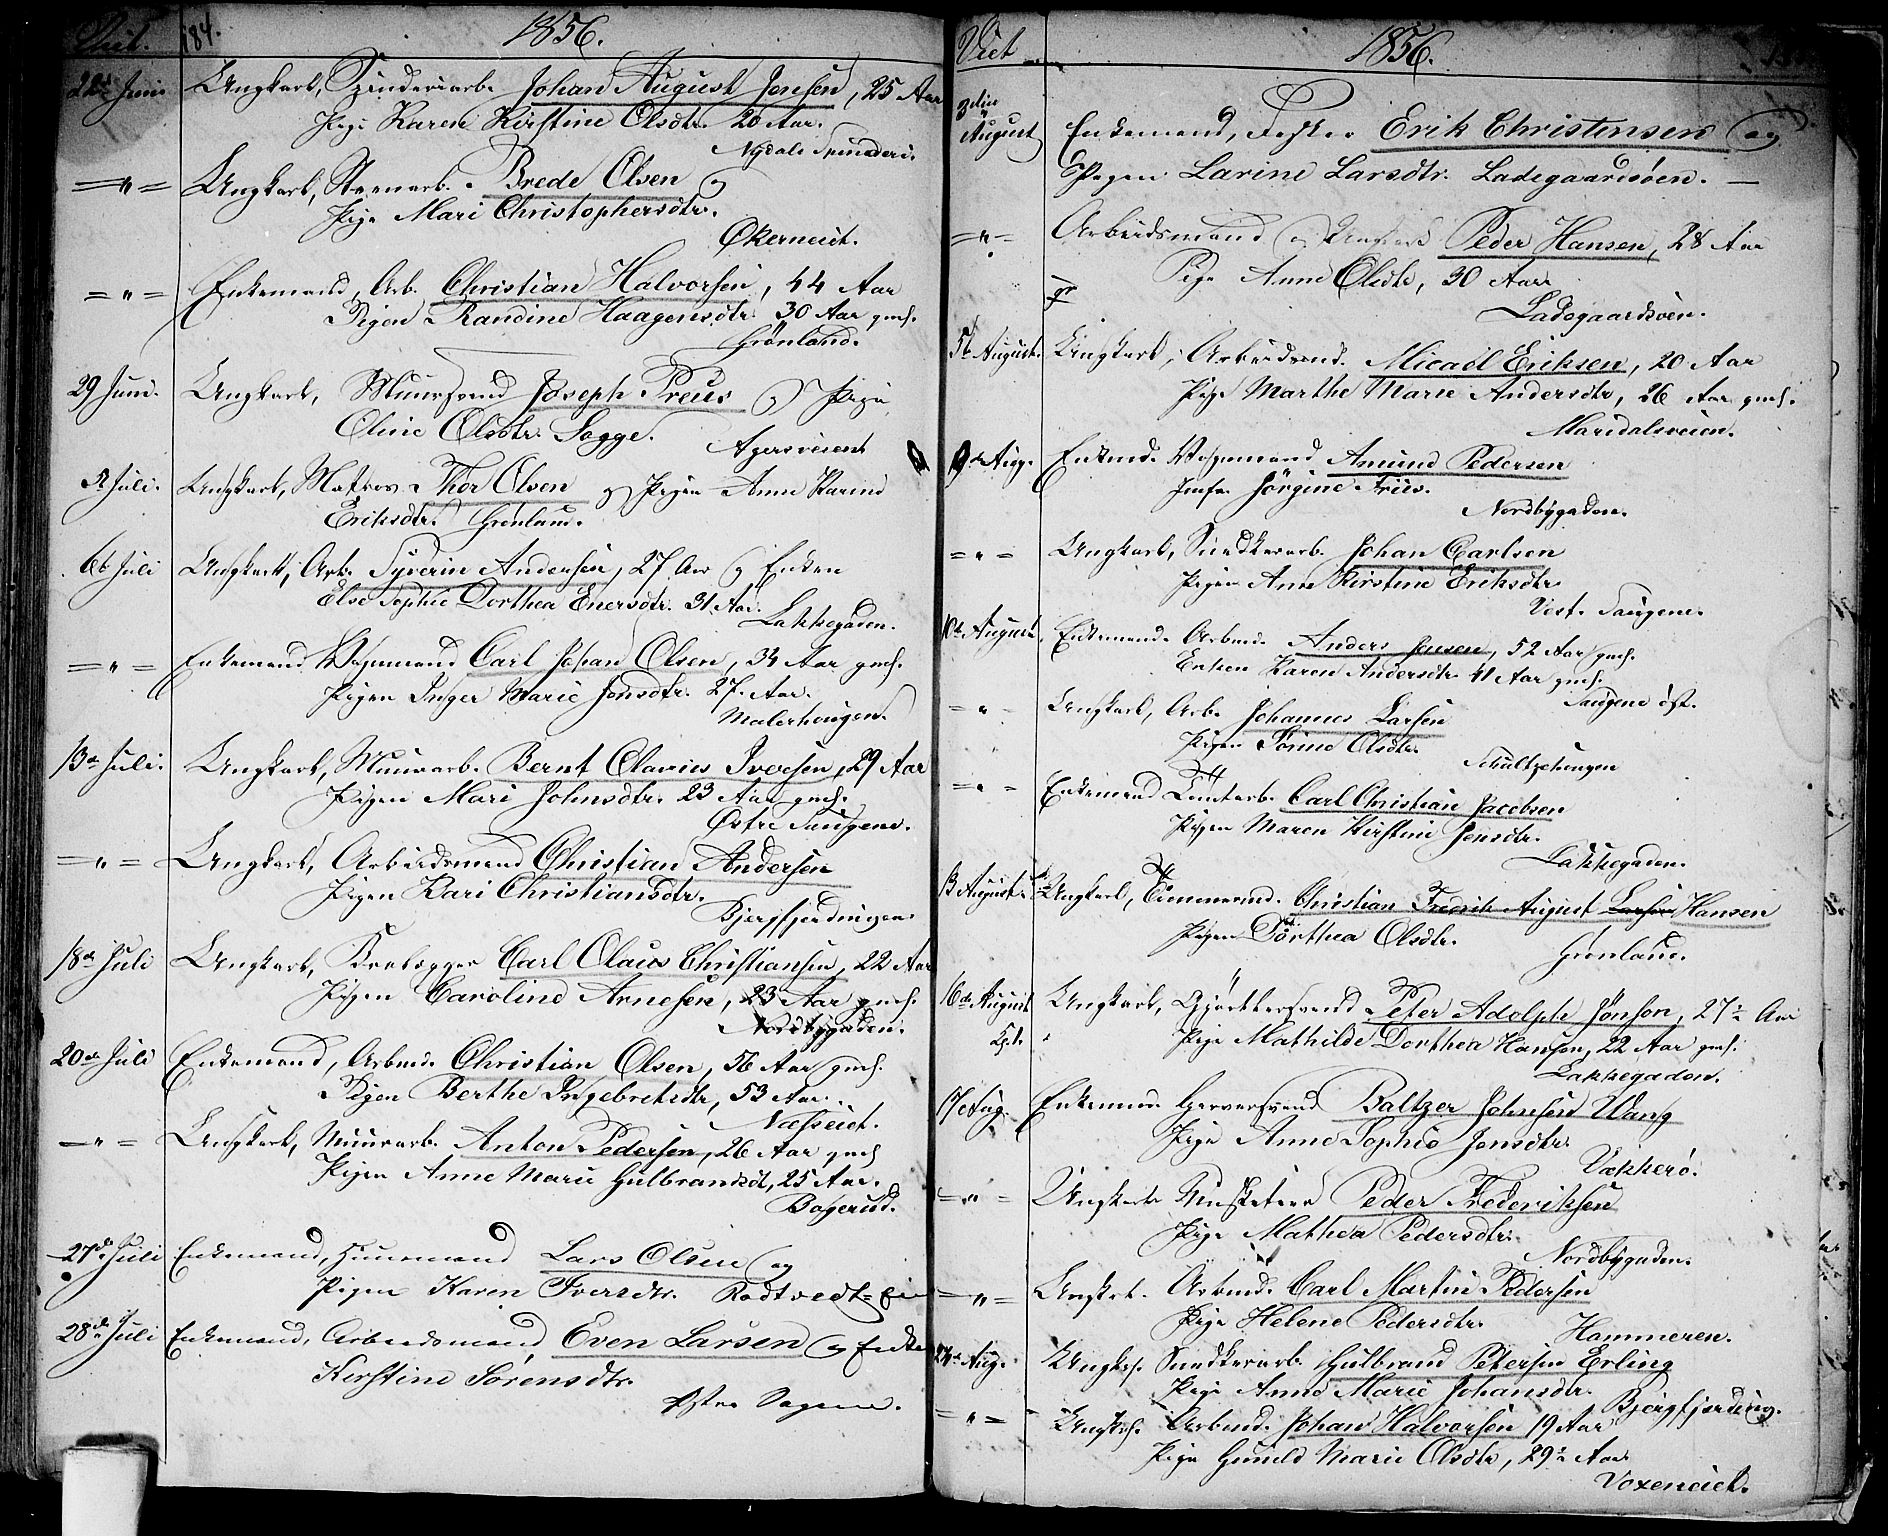 Viet. 184. 1856.
22de Juni Ungkarl, Spinderiarb. Johan August Jensen, 25 Aar
Pige Karen Kirstine Olsdtr. 20 Aar.
Nydals Spinderi.
="= Ungkarl, Steenarb. Brede Olsen og
Pige Mari Christophersdtr.
Økerneiet.
="= Enkemand, Arb. Christian Halvorsen, 44 Aar
Pigen Randine Haagensdtr. 30 Aar gmh.
Grönland.
29 Juni. Ungkarl, Muursvend Joseph Preus og Pige
Oline Olsdtr. Sogge.
Agersveient
5t Juli. Ungkarl, Matros Thor Olsen og Pigen Anne Karine
Eriksdtr. Grönland.
6t Juli Ungkarl, Arb. Syverin Andersen, 27 Aar og Enken
Else Sophie Dorthea Enersdtr. 31 Aar.
Lakkegaden.
="= Enkemand Vognmand Carl Johan Olsen, 34 Aar gmh.
Pigen Inger Marie Jonsdtr. 27 Aar.
Malerhougen.
13de Juli. Ungkarl, Muurarb. Bernt Olavius Iversen, 29 Aar
Pigen Mari Johnsdtr. 23 Aar gmh.
Østre Saugene.
="= Ungkarl, Arbeidsmand Christian Andersen
Pigen Kari Christiansdtr.
Bjergfjerdingen
18de Juli Ungkarl, Carl Olaus Christiansen, 22 Aar
Pigen Caroline Arnesen, 23 Aar gmh.
Nordbygaden.
20de Juli Enkemand, Arbmd. Christian Olsen, 56 Aar gmh.
Pigen Berthe Ingebretsdtr, 53 Aar.
Næsseiet.
="= Ungkarl, Muurarb. Anton Pedersen, 26 Aar gmh
Pigen Anne Marie Gulbrandsdt, 25 Aar.
Bogerud.
27de Juli Enkemand, Huusmand Lars Olsen og
Pigen Karen Iversdtr. Rødtvedt-Eie
28de Juli Enkemand, Arbeidsmand Even Larsen og Enke
Kirstine Sörensdtr.
Østre Sagene.
Viet 1856.
3die August Enkemand, Fisker Erik Christensen og
Pigen Larine Larsdtr. Ladegaardsöen.
="= Arbeidsmand og Ungkarl Peder Hansen, 28 Aar
Pige Anne Olsdtr, 30 Aar
Ladegaardsöen.
5t August. Ungkarl, Arbeidsmd. Micael Eriksen, 20 Aar
Pige Marthe Marie Andersdtr, 26 Aar gmh.
Maridalsveien.
9de Aug. Enkmd. Vognmand Amund Pedersen
Jomfr. Jörgine Friis.
Nordbygaden.
="= Ungkarl, Snedkerarb. Johan Carlsen
Pigen Anne Kirstine Eriksdtr.
Vest. Saugene.
10de August. Enkemand Arbmd. Anders Jensen, 52 Aar gmh.
Enken Karen Andersdtr. 41 Aar gmh.
Saugene öst.
="= Ungkarl, Arb. Johannes Larsen
Pigen Sörine Olsdtr.
Schultzehougen
="= Enkemand Tomtarb. Carl Christian Jacobsen
Pigen Maren Kirstine Jensdtr.
Lakkegaden.
13 August. Ungkarl, Tömmermd. Christian Fredrik August Larsen Hansen
Pigen Dorthea Olsdtr.
Grönland.
16de August Ungkarl, Gjörtlersvend Peter Adolph Jönson, 27½ Aar
Pige Mathilde Dorthea Hansen, 22 Aar gmh.
Lakkegaden.
17 Aug. Enkemand Garversvend Baltzer Johnsen Wang
Pige Anne Sophie Jonsdtr.
Vækkerö.
="= Ungkarl Musketeer Peder Frederiksen
Pige Mathea Pedersdtr.
Nordbygaden.
="= Ungkrl. Arbmd. Carl Martin Pedersen
Pige Helene Pedersdtr.
Hammeren.
24de Aug. Ungkrl. Snedkerarb. Gulbrand Petersen Erling
Pige Anne Marie Johansdtr. Bjergfjerding.
="= Ungkrl. Arbmd. Johan Halvorsen 19 Aar
Pige Gunild Marie Olsdtr, 29½ Aar
Voxeneiet.